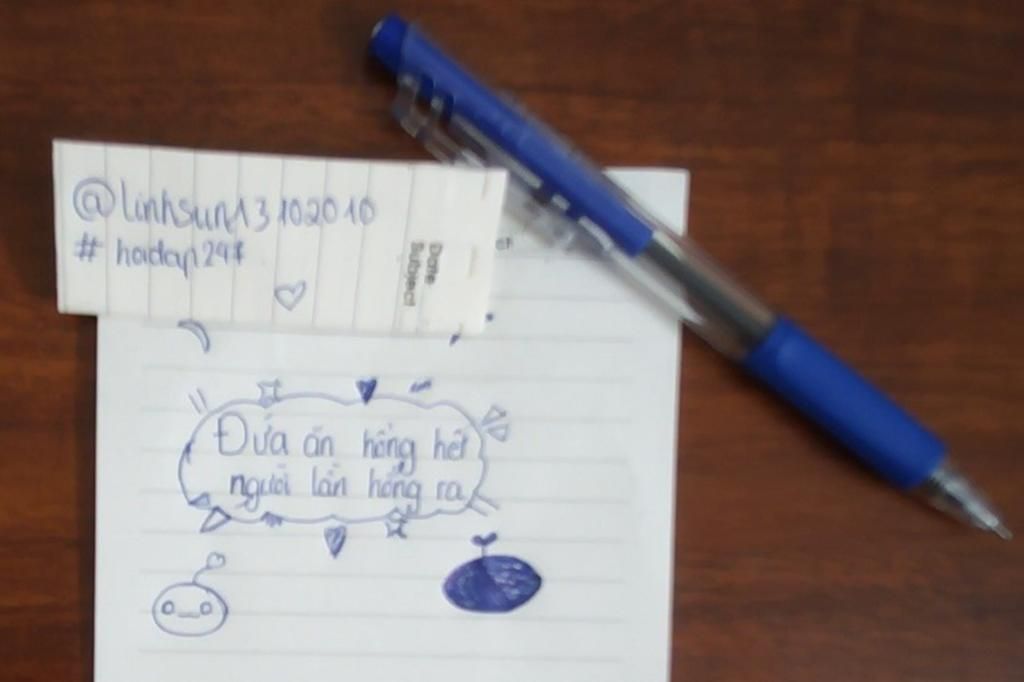 @linhsun13102010
# hoidap247
Date
Subject
Đứa ăn hổng hết
người lần hổng ra